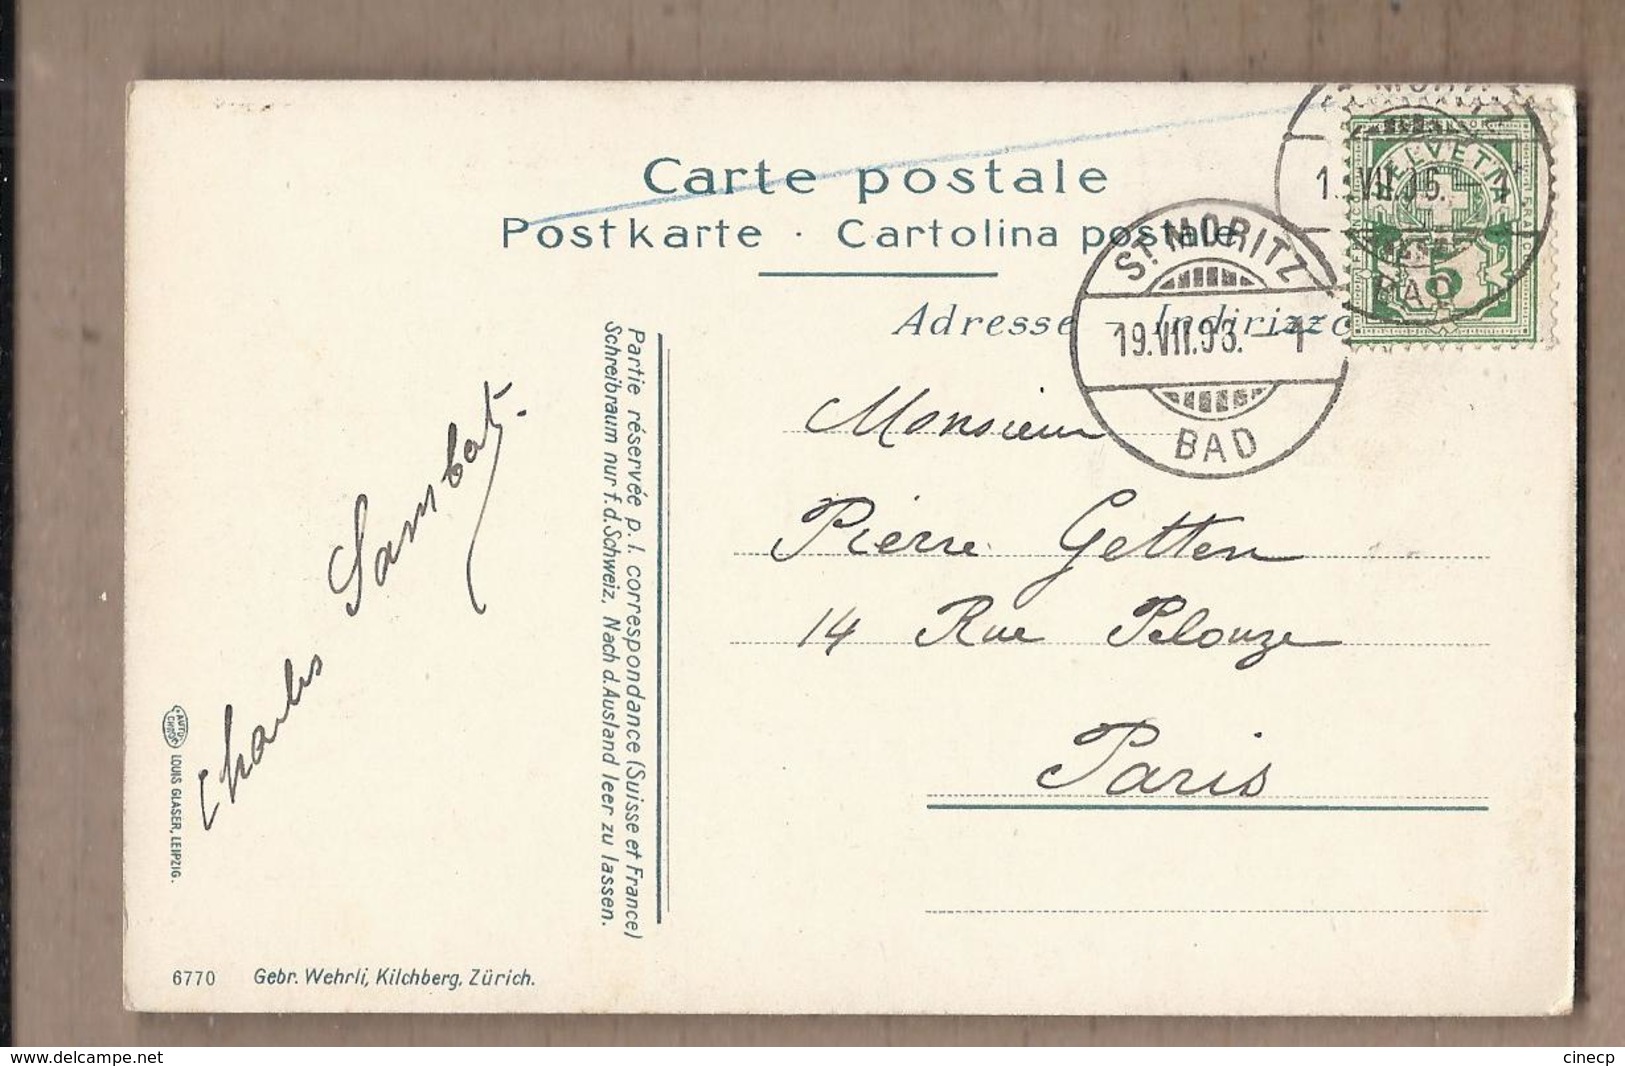 Carte postale
Postkarte · Cartolina postale
Adresse - Indirizzo
ST. MORITZ
19.VII.06. - 1
BAD
HELVETIA
5
BAD
Monsieur
Pierre Getten
14 Rue Pelouze
Paris
Partie réservée p. l. correspondance (Suisse et France)
Schreibraum nur f. d. Schweiz, Nach d. Ausland leer zu lassen.
Charles Sambat.
AUTO-
CHROM
LOUIS GLASER, LEIPZIG.
6770 Gebr. Wehrli, Kilchberg, Zürich.
www.delcampe.net
cinecp